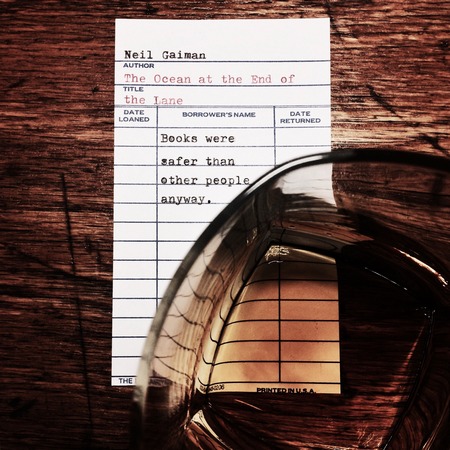 Neil Gaiman
AUTHOR
The Ocean at the End of
TITLE
the Lane
DATE LOANED BORROWER'S NAME DATE RETURNED
Books were
safer than
other people
anyway.
THE
PRINTED IN U.S.A.